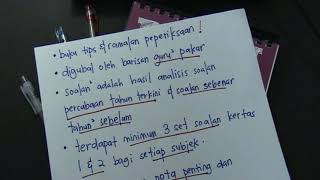 • buku tips & ramalan peperiksaan !
• digubal oleh barisan guru² pakar
• soalan² adalah hasil analisis soalan
percubaan tahun terkini & soalan sebenar
tahun² sebelum
• terdapat minimum 3 set soalan kertas
1 & 2 bagi setiap subjek.
nota penting dan